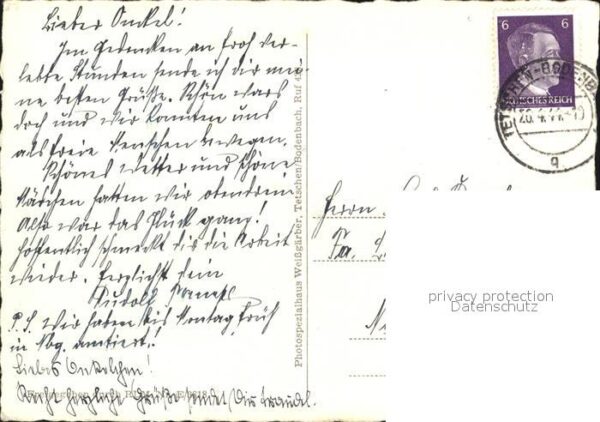 Lieber Onkel!
Im Gedenken an froh ver-
lebte Stunden sende ich dir mei-
ne besten Grüße. Schön wars
doch und wir konnten uns
als freie Menschen bewegen.
Schönes Wetter und schöne
Mädchen hatten wir obendrein
Also war das Glück ganz!
Hoffentlich schmeckt dir die Arbeit
wieder. Herzlichst dein
Rudolf
P.S. Wir haben bis Montag früh
in Nbg. amtiert!
Liebes Onkelchen!
Recht herzliche Grüße sendet Dir Traudel.
Photospezialhaus Weißgärber, Tetschen/Bodenbach, Ruf
6 6
DEUTSCHES REICH
TETSCHEN-BODENB
20. 4. 44
g
Herrn
Fa.
privacy protection
Datenschutz